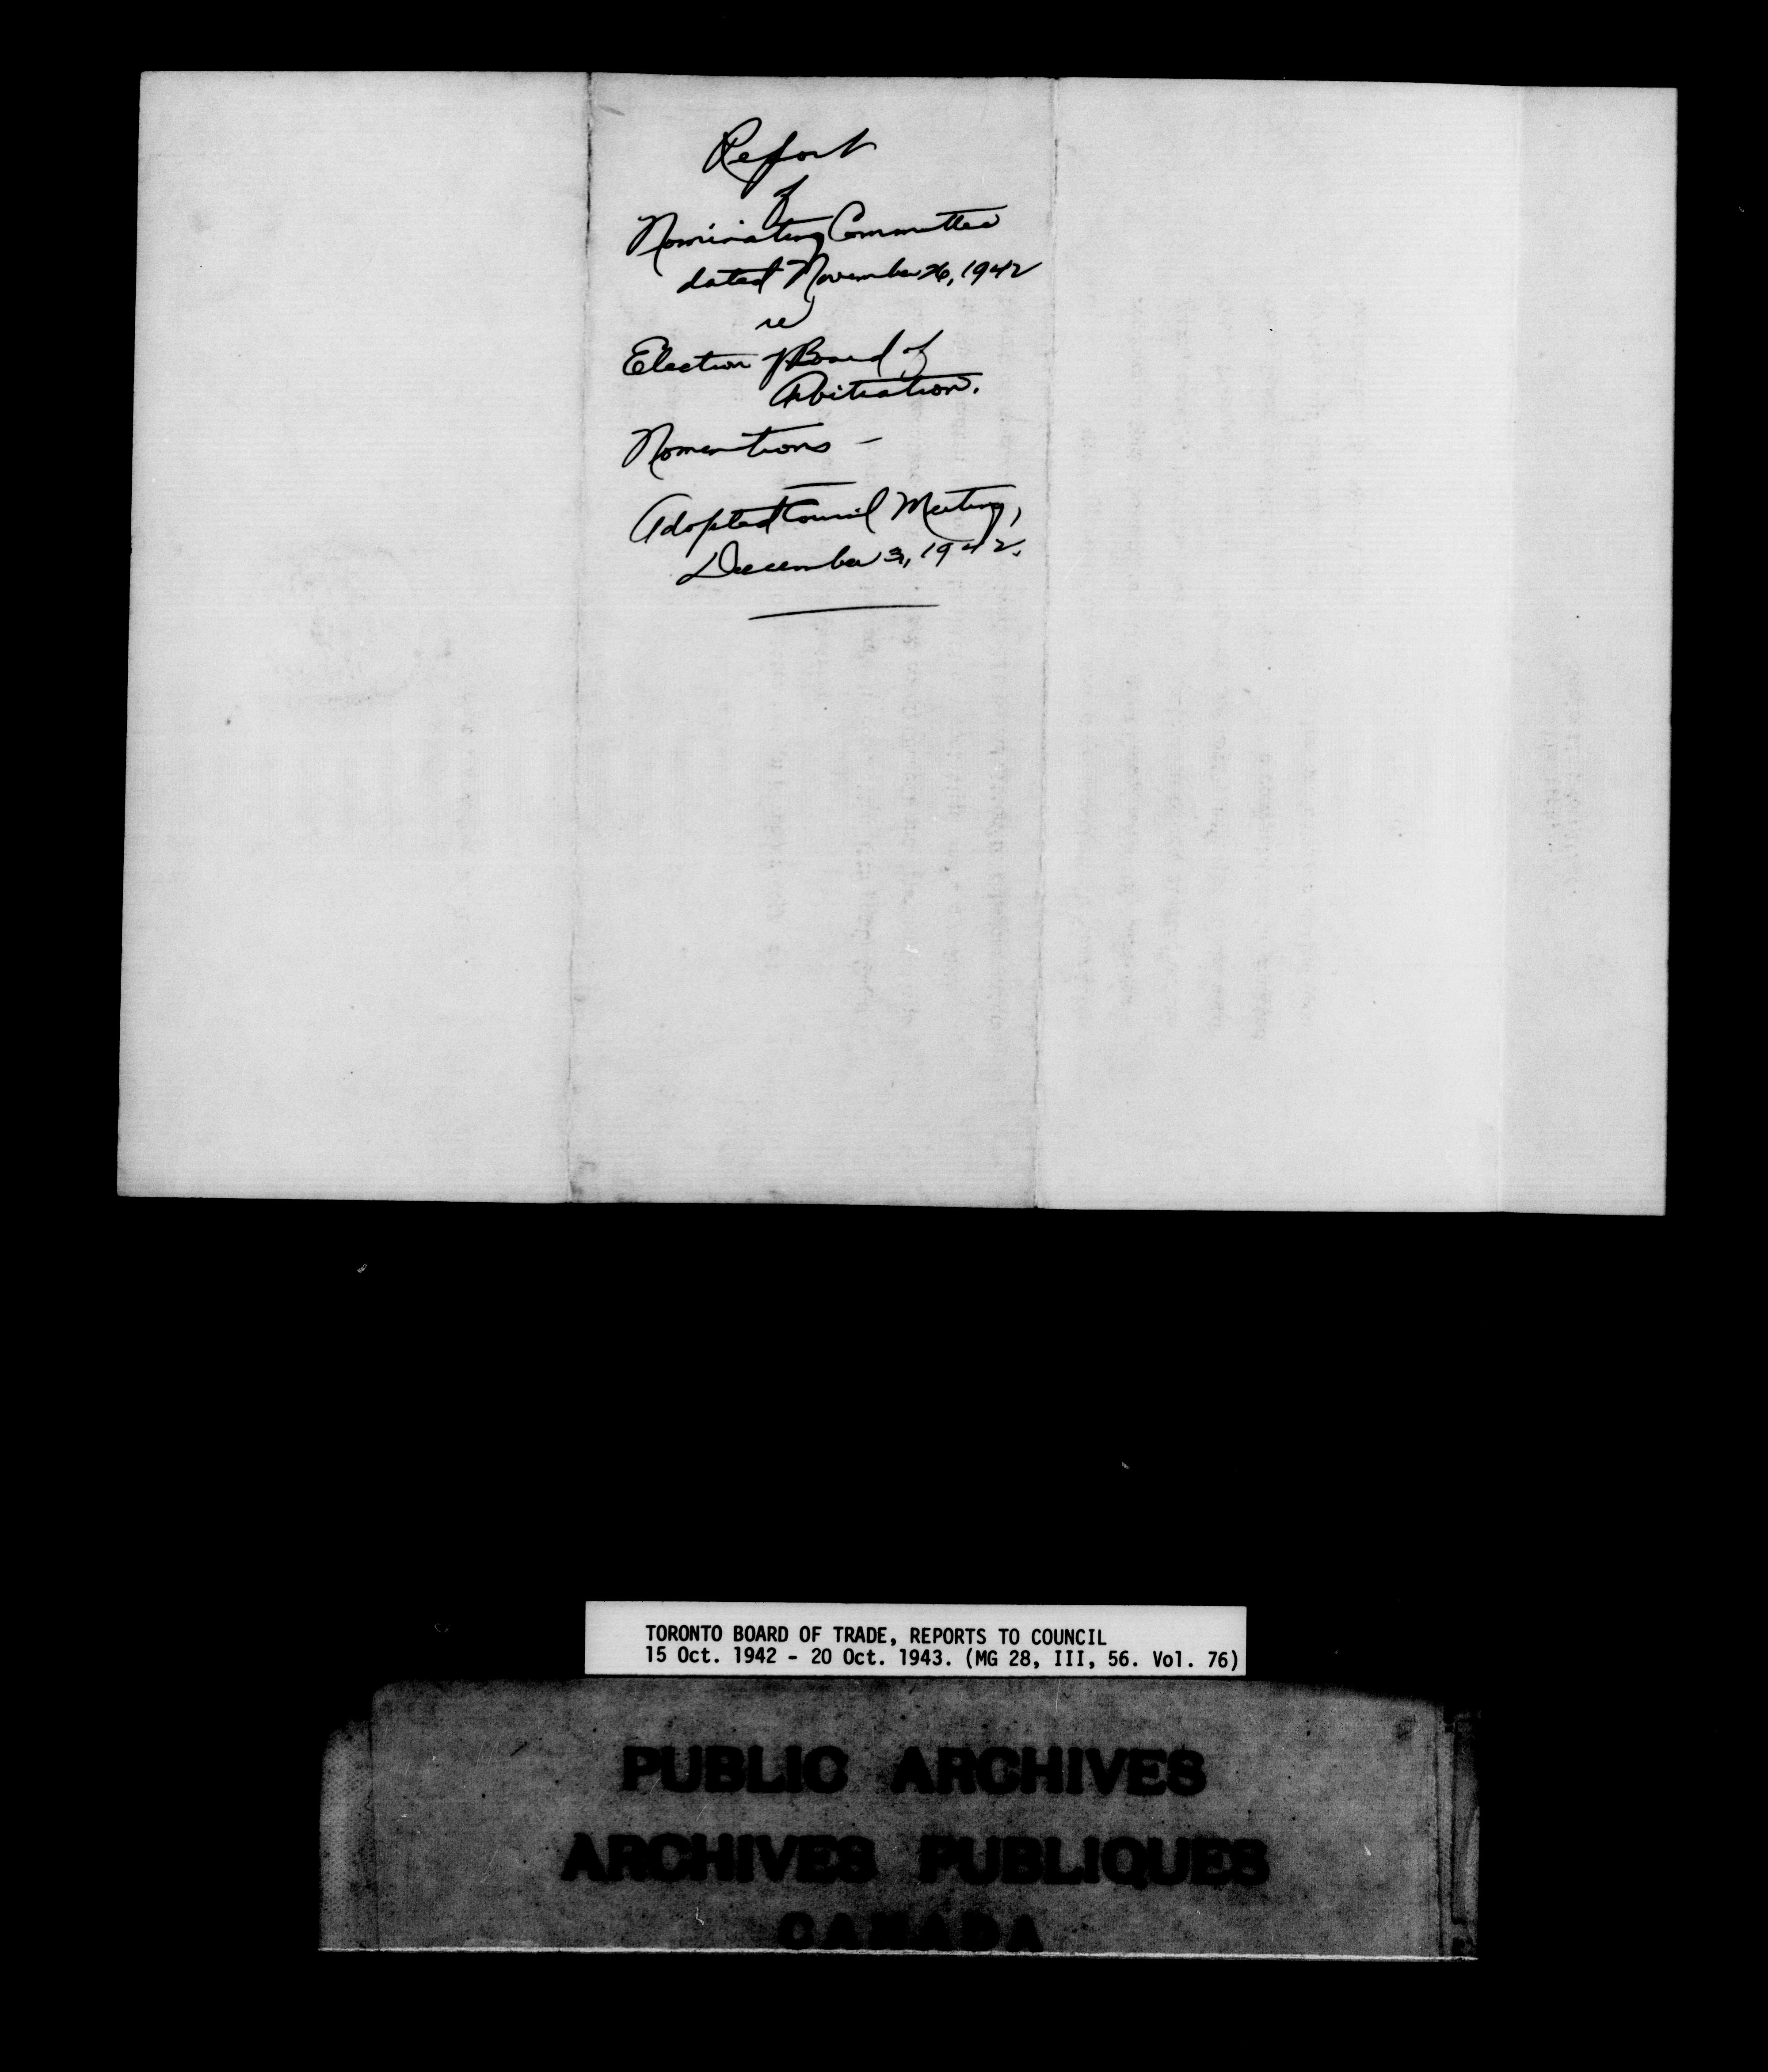 Report
of
Nominating Committee
dated November 26, 1942
re
Election of Board of
Arbitration.
Nominations —
Adopted Council Meeting,
December 3, 1942.
TORONTO BOARD OF TRADE, REPORTS TO COUNCIL
15 Oct. 1942 - 20 Oct. 1943. (MG 28, III, 56. Vol. 76)
PUBLIC ARCHIVES
ARCHIVES PUBLIQUES
CANADA